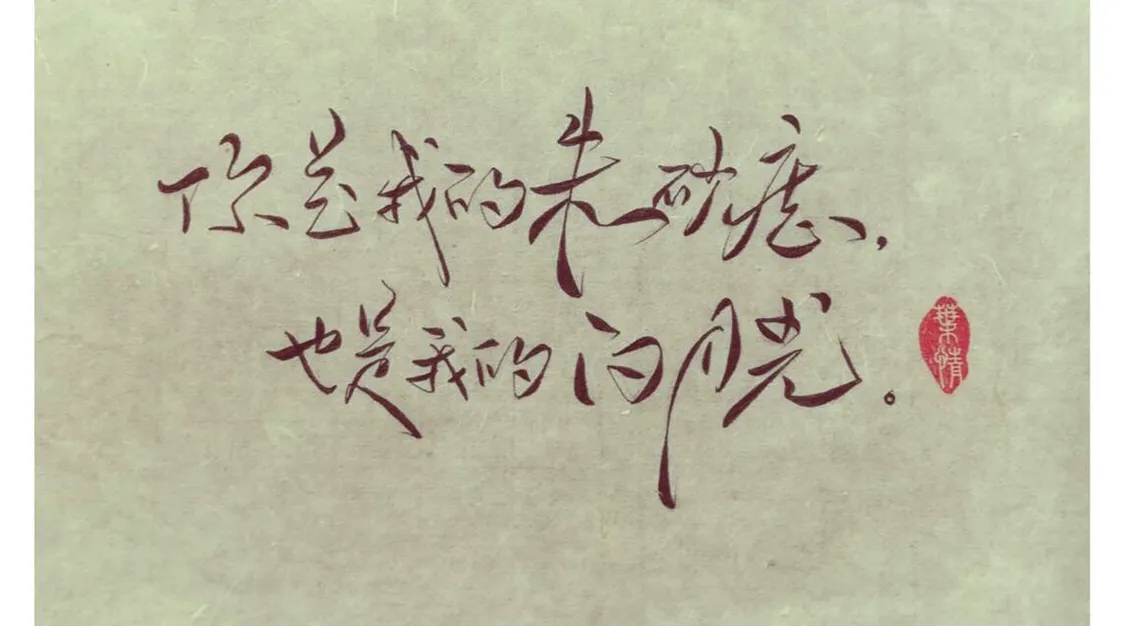 你是我的朱砂痣,
也是我的白月光。
葉情